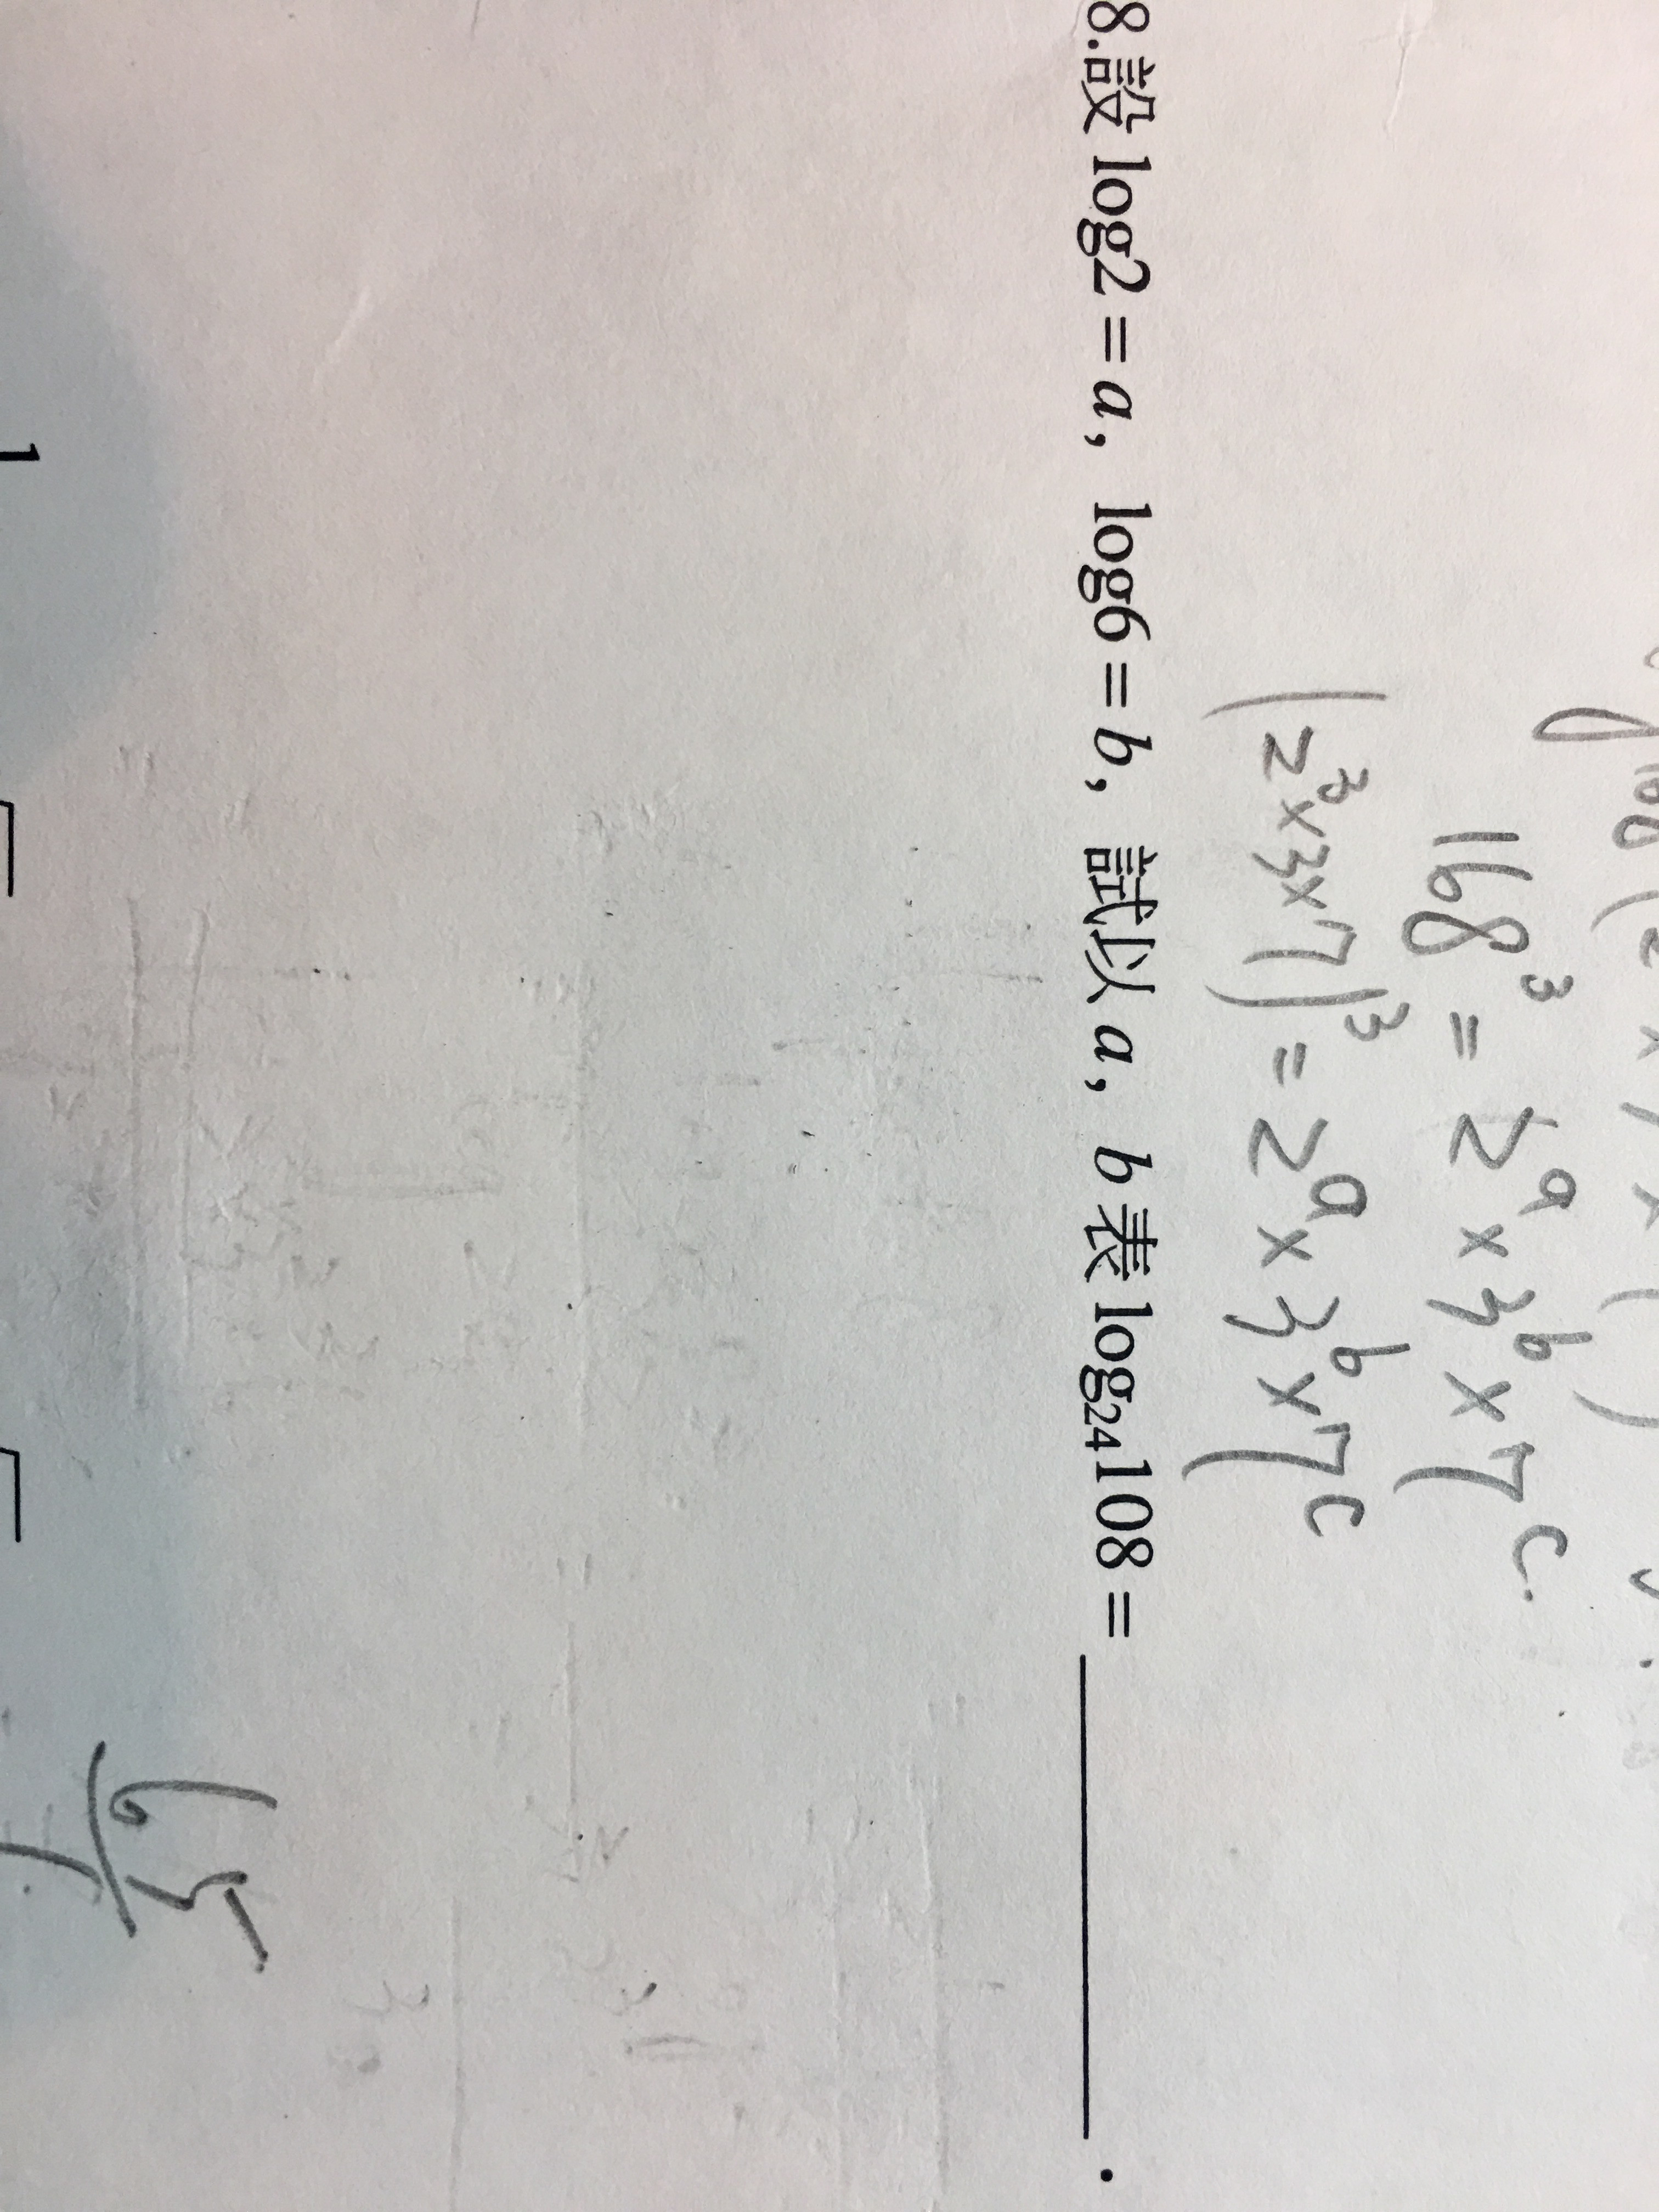 168³ = 2ᵃ × 3ᵇ × 7ᶜ.
(2³×3×7)³ = 2ᵃ × 3ᵇ × 7ᶜ
8.設 log2 = a, log6 = b, 試以 a, b 表 log₂₄108 = ________.